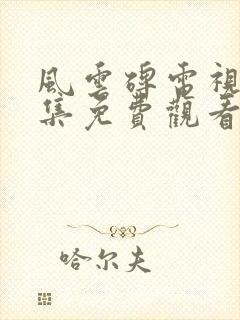 風雲碑電視
集免費觀看
哈尔夫